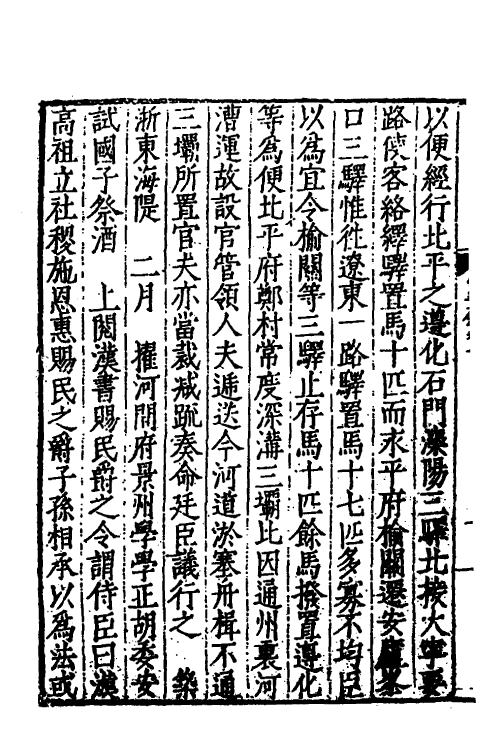 以便經行北平之遵化石門灤陽三驛北接大寧要
路使客絡繹驛置馬十匹而永平府榆關遷安蘆峯
口三驛惟往遼東一路驛置馬十七匹多寡不均臣
以為宜令榆關等三驛止存馬十匹餘馬撥置遵化
等為便北平府鄭村常度深溝三壩比因通州裏河
漕運故設官管領人夫遞送今河道淤塞舟楫不通
三壩所置官夫亦當裁减䟽奏命廷臣議行之　築
浙東海隄　二月　擢河間府景州學學正胡委安
試國子祭酒　上閱漢書賜民爵之令謂侍臣曰漢
高祖立社稷施恩惠賜民之爵子孫相承以為法或